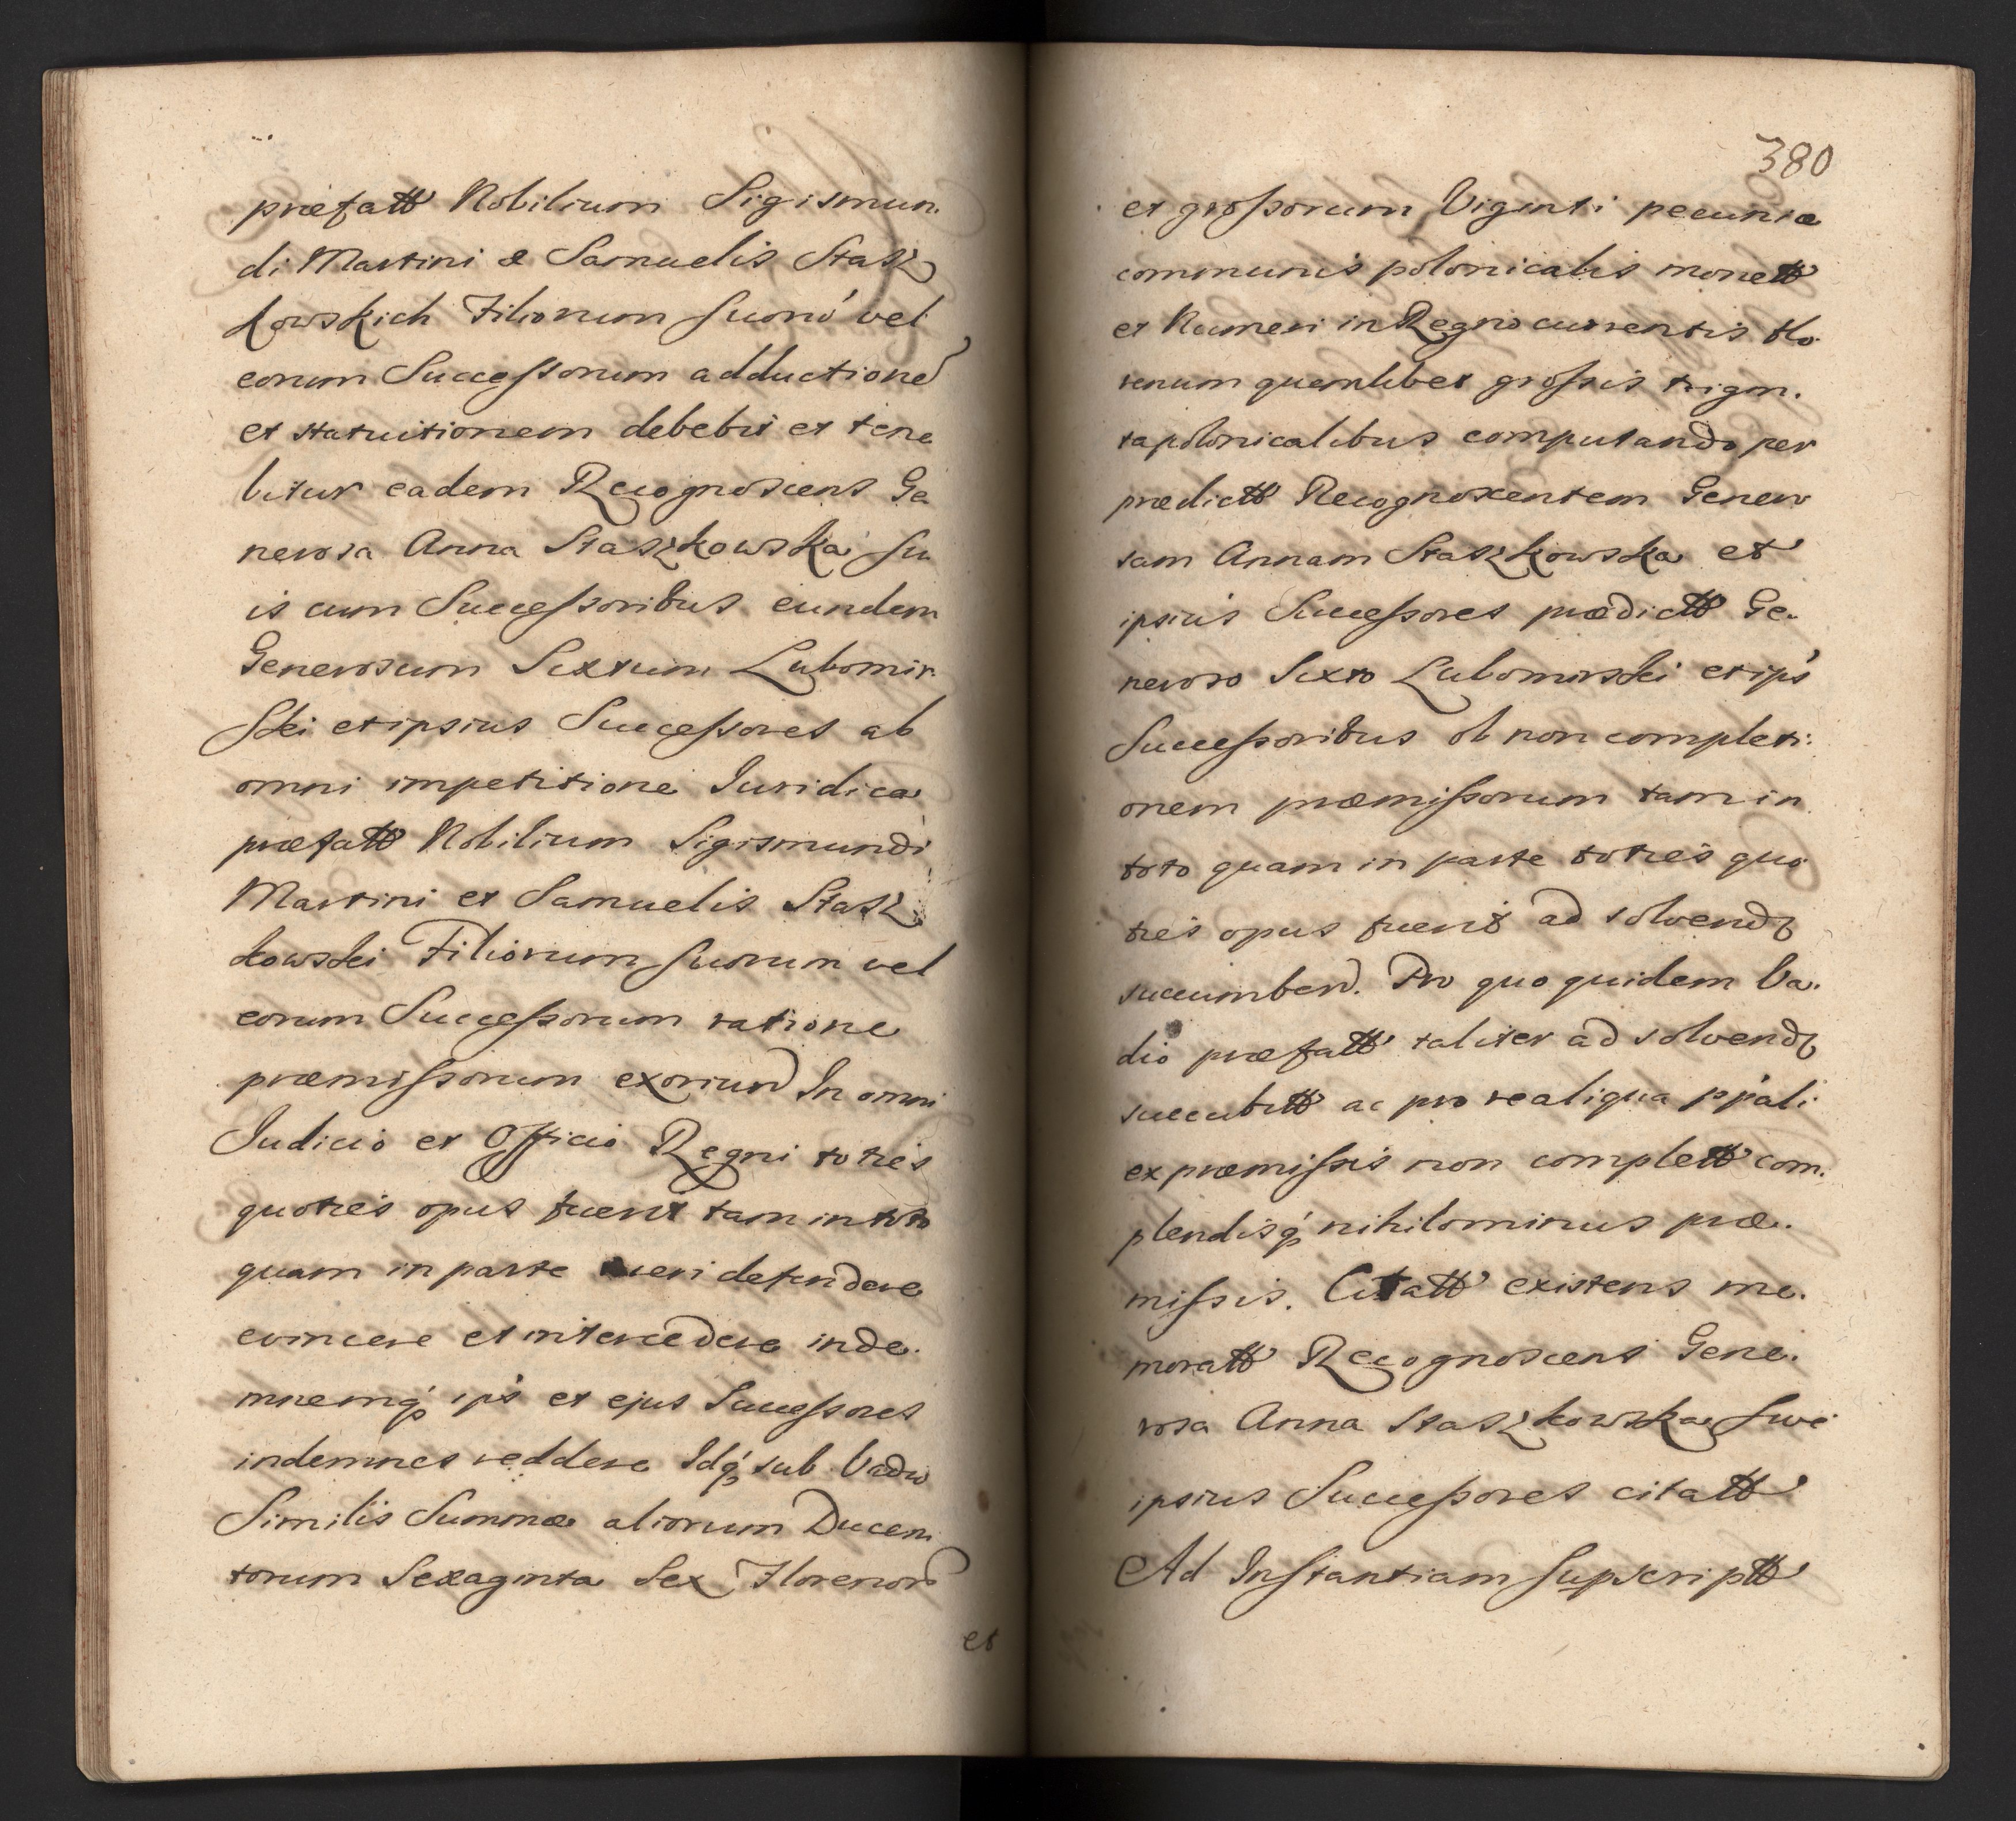 præfatt Nobilium Sigismun.
di Martini & Samuelis Stasz
kowskich Filiorum suorũ vel
eorum Successorum adductione
et statuitionem debebit et tene
bitur eadem Recognoscens Ge
nerosa Anna Staszkowska su
is cum Successoribus eundem
Generosum Sixtum Lubomir.
ski et ipsius Successores ab
omni impetitione Iuridica
præfatt Nobilium Sigismundi
Martini et Samuelis Stasz
kowski Filiorum suorum vel
eorum Successorum ratione
præmissorum exoriund In omni
Iudicio et Officio Regni toties
quoties opus fuerit tam in toto
quam in parte tueri defendere
evincere et intercedere inde.
mnemq́ ips et ejus Successores
indemnes reddere Idq́ sub Vadio
Similis Summæ aliorum Ducen
torum Sexaginta Sex Florenor
et
380
et grossorum Viginti pecuniæ
communis polonicalis monett
et Numeri in Regno currentis flo
renum quemlibet grossis trigin.
ta polonicalibus computando per
prædictt Recognoscentem Genero
sam Annam Staszkowska et
ipsius Successores prædictt Ge.
neroso Sixto Lubomirski et ips
Successoribus ob non completi.
onem præmissorum tam in
toto quam in parte toties quo
ties opus fuerit ad solvend
succumbend. Pro quo quidem Va.
dio præfatt taliter ad solvend
succubitt ac pro re aliqua pp̃ali
ex præmissis non complett com.
plendisq́ nihilominus præ.
missis. Citatt existens me.
moratt Recognoscens Gene.
rosa Anna Staszkowska sive
ipsius Successores citatt
Ad Instantiam supscriptt